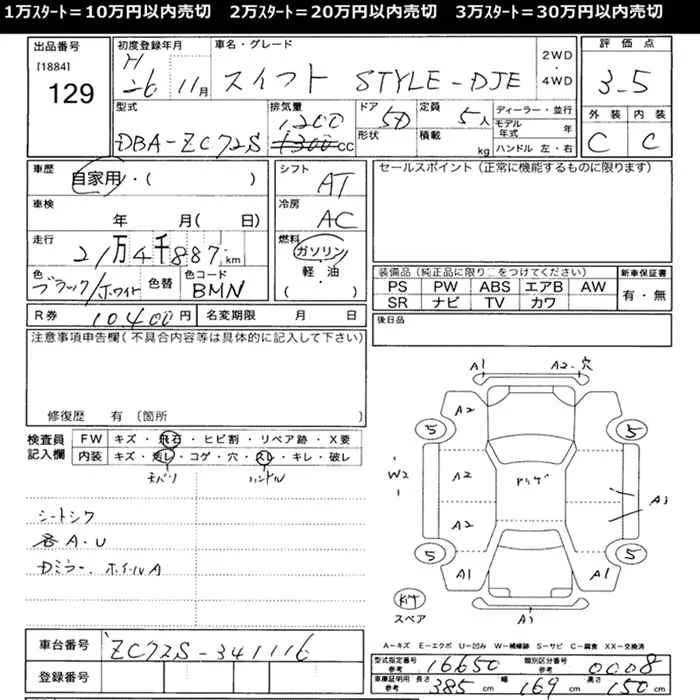 1万スタート=10万円以内売切　2万スタート=20万円以内売切　3万スタート=30万円以内売切
出品番号
[1884]
129
初度登録年月
H
26 11月
車名・グレード
スイフト STYLE-DJE
2WD
・
4WD
評価点
3.5
外装 内装
C C
型式
DBA-ZC72S
排気量
1200
1300cc
ドア
5D
形状
定員
5人
積載
kg
ディーラー・並行
モデル年式 年
ハンドル 左・右
車歴
自家用・( )
車検
年 月( 日)
走行
21万4千887km
色
ブラック/ホワイト
色替
色コード
BMN
シフト
AT
冷房
AC
燃料
ガソリン
軽・油
( )
R券 10,400円
名変期限 月 日
セールスポイント(正常に機能するものに限ります)
装備品(純正品に限り○をつけてください)
PS PW ABS エアB AW
SR ナビ TV カワ
新車保証書
有・無
後日品
注意事項申告欄(不具合内容等は具体的に記入して下さい)
修復歴 有 〔箇所
検査員
記入欄
FW キズ・飛石・ヒビ割・リペア跡・X要
内装 キズ・汚レ・コゲ・穴・スレ・キレ・破レ
ハンドル
シートシワ
各A.U
Dミラー、ホイルA
A1 A2.穴
A2
5 5
W2
A2
A2
A3
5 5
A1 A1
スペア
A1
車台番号 ZC72S-341116
登録番号
A－キズ E－エクボ U－凹み W－補修跡 S－サビ C－腐食 XX－交換済
型式指定番号 参考 16650
類別区分番号 参考 0008
車庫証明用 参考 長さ 385cm 幅 169cm 高さ 150cm